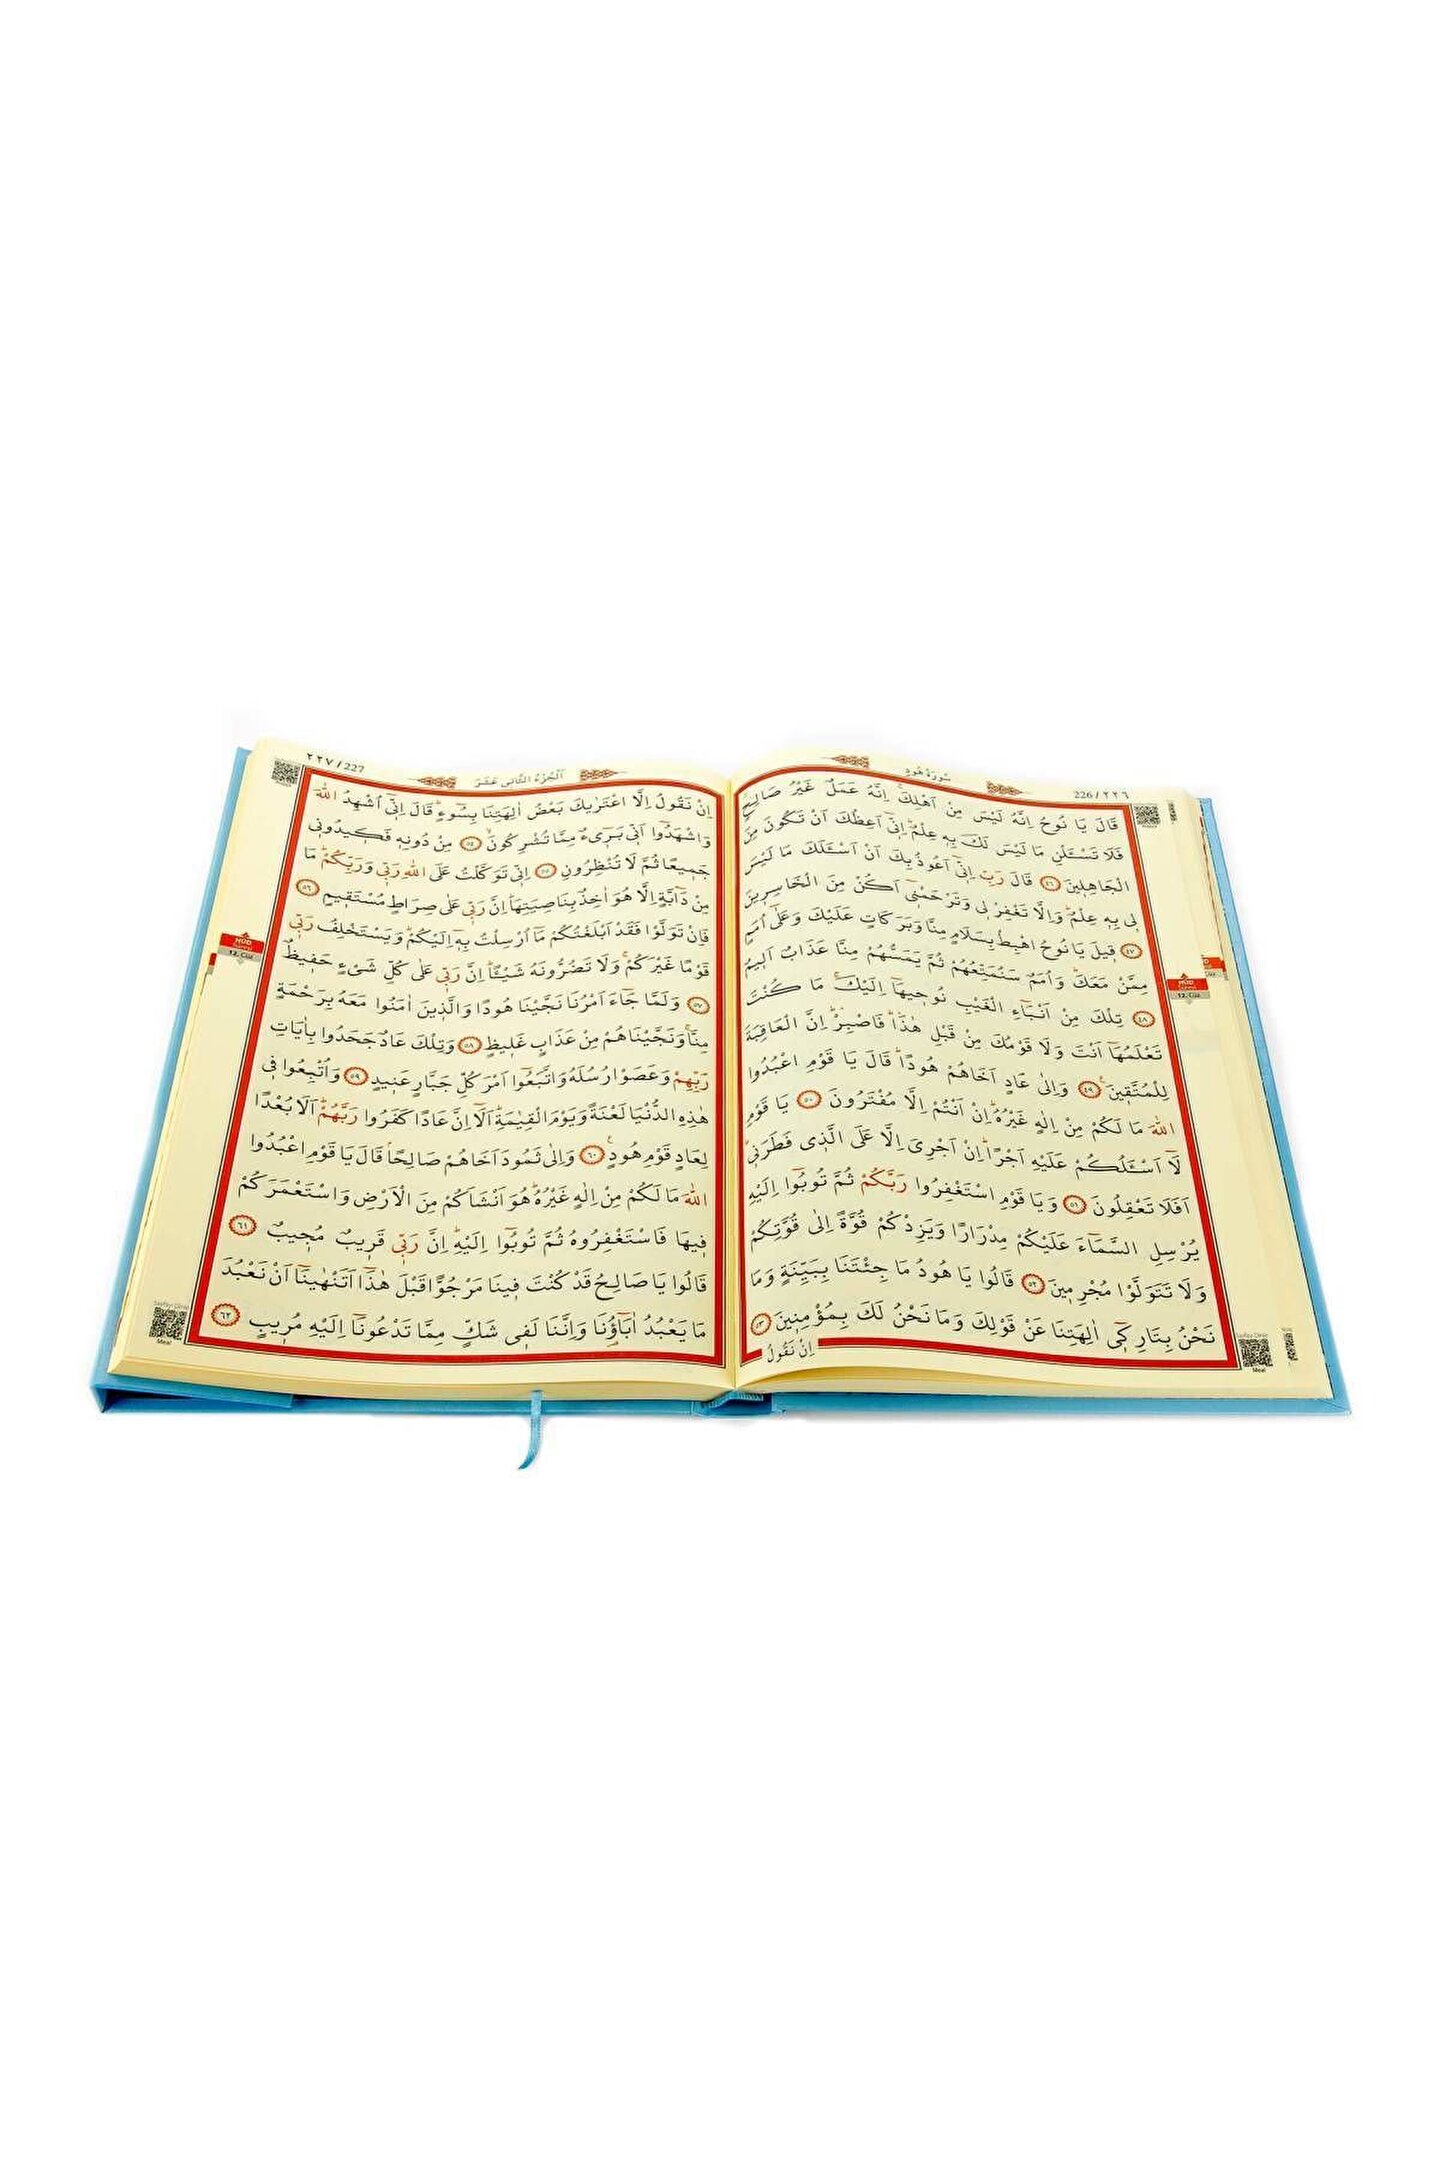 226 / ٢٢٦
سُورَةُ هُودٍ
قَالَ يَا نُوحُ اِنَّهُ لَيْسَ مِنْ اَهْلِكَۚ اِنَّهُ عَمَلٌ غَيْرُ صَالِحٍۗ
فَلَا تَسْـَٔلْنِ مَا لَيْسَ لَكَ بِه۪ عِلْمٌۜ اِنّ۪ٓي اَعِظُكَ اَنْ تَكُونَ مِنَ
الْجَاهِل۪ينَ ٤٦ قَالَ رَبِّ اِنّ۪ٓي اَعُوذُ بِكَ اَنْ اَسْـَٔلَكَ مَا لَيْسَ
ل۪ي بِه۪ عِلْمٌۜ وَاِلَّا تَغْفِرْ ل۪ي وَتَرْحَمْن۪ٓي اَكُنْ مِنَ الْخَاسِر۪ينَ
٤٧ ق۪يلَ يَا نُوحُ اهْبِطْ بِسَلَامٍ مِنَّا وَبَرَكَاتٍ عَلَيْكَ وَعَلٰٓى اُمَمٍ
مِمَّنْ مَعَكَۜ وَاُمَمٌ سَنُمَتِّعُهُمْ ثُمَّ يَمَسُّهُمْ مِنَّا عَذَابٌ اَل۪يمٌ
٤٨ تِلْكَ مِنْ اَنْبَٓاءِ الْغَيْبِ نُوح۪يهَٓا اِلَيْكَۚ مَا كُنْتَ
تَعْلَمُهَٓا اَنْتَ وَلَا قَوْمُكَ مِنْ قَبْلِ هٰذَاۜ فَاصْبِرْۜ اِنَّ الْعَاقِبَةَ
لِلْمُتَّق۪ينَ۟ ٤٩ وَاِلٰى عَادٍ اَخَاهُمْ هُودًاۜ قَالَ يَا قَوْمِ اعْبُدُوا
اللّٰهَ مَا لَكُمْ مِنْ اِلٰهٍ غَيْرُهُۜ اِنْ اَنْتُمْ اِلَّا مُفْتَرُونَ ٥٠ يَا قَوْمِ
لَٓا اَسْـَٔلُكُمْ عَلَيْهِ اَجْرًاۜ اِنْ اَجْرِيَ اِلَّا عَلَى الَّذ۪ي فَطَرَن۪يۜ
اَفَلَا تَعْقِلُونَ ٥١ وَيَا قَوْمِ اسْتَغْفِرُوا رَبَّكُمْ ثُمَّ تُوبُٓوا اِلَيْهِ
يُرْسِلِ السَّمَٓاءَ عَلَيْكُمْ مِدْرَارًا وَيَزِدْكُمْ قُوَّةً اِلٰى قُوَّتِكُمْ
وَلَا تَتَوَلَّوْا مُجْرِم۪ينَ ٥٢ قَالُوا يَا هُودُ مَا جِئْتَنَا بِبَيِّنَةٍ وَمَا
نَحْنُ بِتَارِك۪ٓي اٰلِهَتِنَا عَنْ قَوْلِكَ وَمَا نَحْنُ لَكَ بِمُؤْمِن۪ينَ ٥٣
اِنْ نَقُولُ
HÛD
12. Cüz
Meal
٢٢٧ / 227
اَلْجُزْءُ الثَّانِي عَشَرَ
اِنْ نَقُولُ اِلَّا اعْتَرٰيكَ بَعْضُ اٰلِهَتِنَا بِسُٓوءٍۜ قَالَ اِنّ۪ٓي اُشْهِدُ اللّٰهَ
وَاشْهَدُٓوا اَنّ۪ي بَر۪ٓيءٌ مِمَّا تُشْرِكُونَۙ ٥٤ مِنْ دُونِه۪ فَك۪يدُون۪ي
جَم۪يعًا ثُمَّ لَا تُنْظِرُونِ ٥٥ اِنّ۪ي تَوَكَّلْتُ عَلَى اللّٰهِ رَبّ۪ي وَرَبِّكُمْۜ مَا
مِنْ دَٓابَّةٍ اِلَّا هُوَ اٰخِذٌ بِنَاصِيَتِهَاۜ اِنَّ رَبّ۪ي عَلٰى صِرَاطٍ مُسْتَق۪يمٍ ٥٦
فَاِنْ تَوَلَّوْا فَقَدْ اَبْلَغْتُكُمْ مَٓا اُرْسِلْتُ بِه۪ٓ اِلَيْكُمْۜ وَيَسْتَخْلِفُ رَبّ۪ي
قَوْمًا غَيْرَكُمْۚ وَلَا تَضُرُّونَهُ شَيْـًٔاۜ اِنَّ رَبّ۪ي عَلٰى كُلِّ شَيْءٍ حَف۪يظٌ
٥٧ وَلَمَّا جَٓاءَ اَمْرُنَا نَجَّيْنَا هُودًا وَالَّذ۪ينَ اٰمَنُوا مَعَهُ بِرَحْمَةٍ
مِنَّاۚ وَنَجَّيْنَاهُمْ مِنْ عَذَابٍ غَل۪يظٍ ٥٨ وَتِلْكَ عَادٌ جَحَدُوا بِاٰيَاتِ
رَبِّهِمْ وَعَصَوْا رُسُلَهُ وَاتَّبَعُٓوا اَمْرَ كُلِّ جَبَّارٍ عَن۪يدٍ ٥٩ وَاُتْبِعُوا ف۪ي
هٰذِهِ الدُّنْيَا لَعْنَةً وَيَوْمَ الْقِيٰمَةِۜ اَلَٓا اِنَّ عَادًا كَفَرُوا رَبَّهُمْۜ اَلَا بُعْدًا
لِعَادٍ قَوْمِ هُودٍ۟ ٦٠ وَاِلٰى ثَمُودَ اَخَاهُمْ صَالِحًاۢ قَالَ يَا قَوْمِ اعْبُدُوا
اللّٰهَ مَا لَكُمْ مِنْ اِلٰهٍ غَيْرُهُۜ هُوَ اَنْشَاَكُمْ مِنَ الْاَرْضِ وَاسْتَعْمَرَكُمْ
ف۪يهَا فَاسْتَغْفِرُوهُ ثُمَّ تُوبُٓوا اِلَيْهِۜ اِنَّ رَبّ۪ي قَر۪يبٌ مُج۪يبٌ ٦١
قَالُوا يَا صَالِحُ قَدْ كُنْتَ ف۪ينَا مَرْجُوًّا قَبْلَ هٰذَٓا اَتَنْهٰينَٓا اَنْ نَعْبُدَ
مَا يَعْبُدُ اٰبَٓاؤُ۬نَا وَاِنَّنَا لَف۪ي شَكٍّ مِمَّا تَدْعُونَٓا اِلَيْهِ مُر۪يبٍ ٦٢
HÛD
12. Cüz
Meal